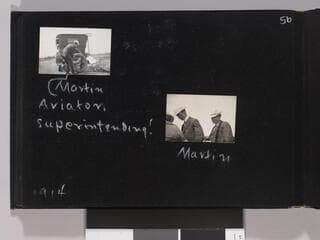 56
(Martin
Aviator,
superintending!
Martin
1914